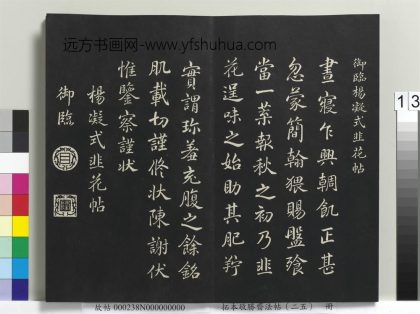 远方书画网-www.yfshuhua.com
御臨楊凝式韭花帖
晝寢乍興輖飢正甚
忽蒙簡翰猥賜盤飧
當一葉報秋之初乃韭
花逞味之始助其肥羜
實謂珍羞充腹之餘銘
肌載切謹修状陳謝伏
惟鑒察謹状
楊凝式韭花帖
御臨
13
故帖 000238N000000000 拓本敬勝齋法帖（二五） 冊